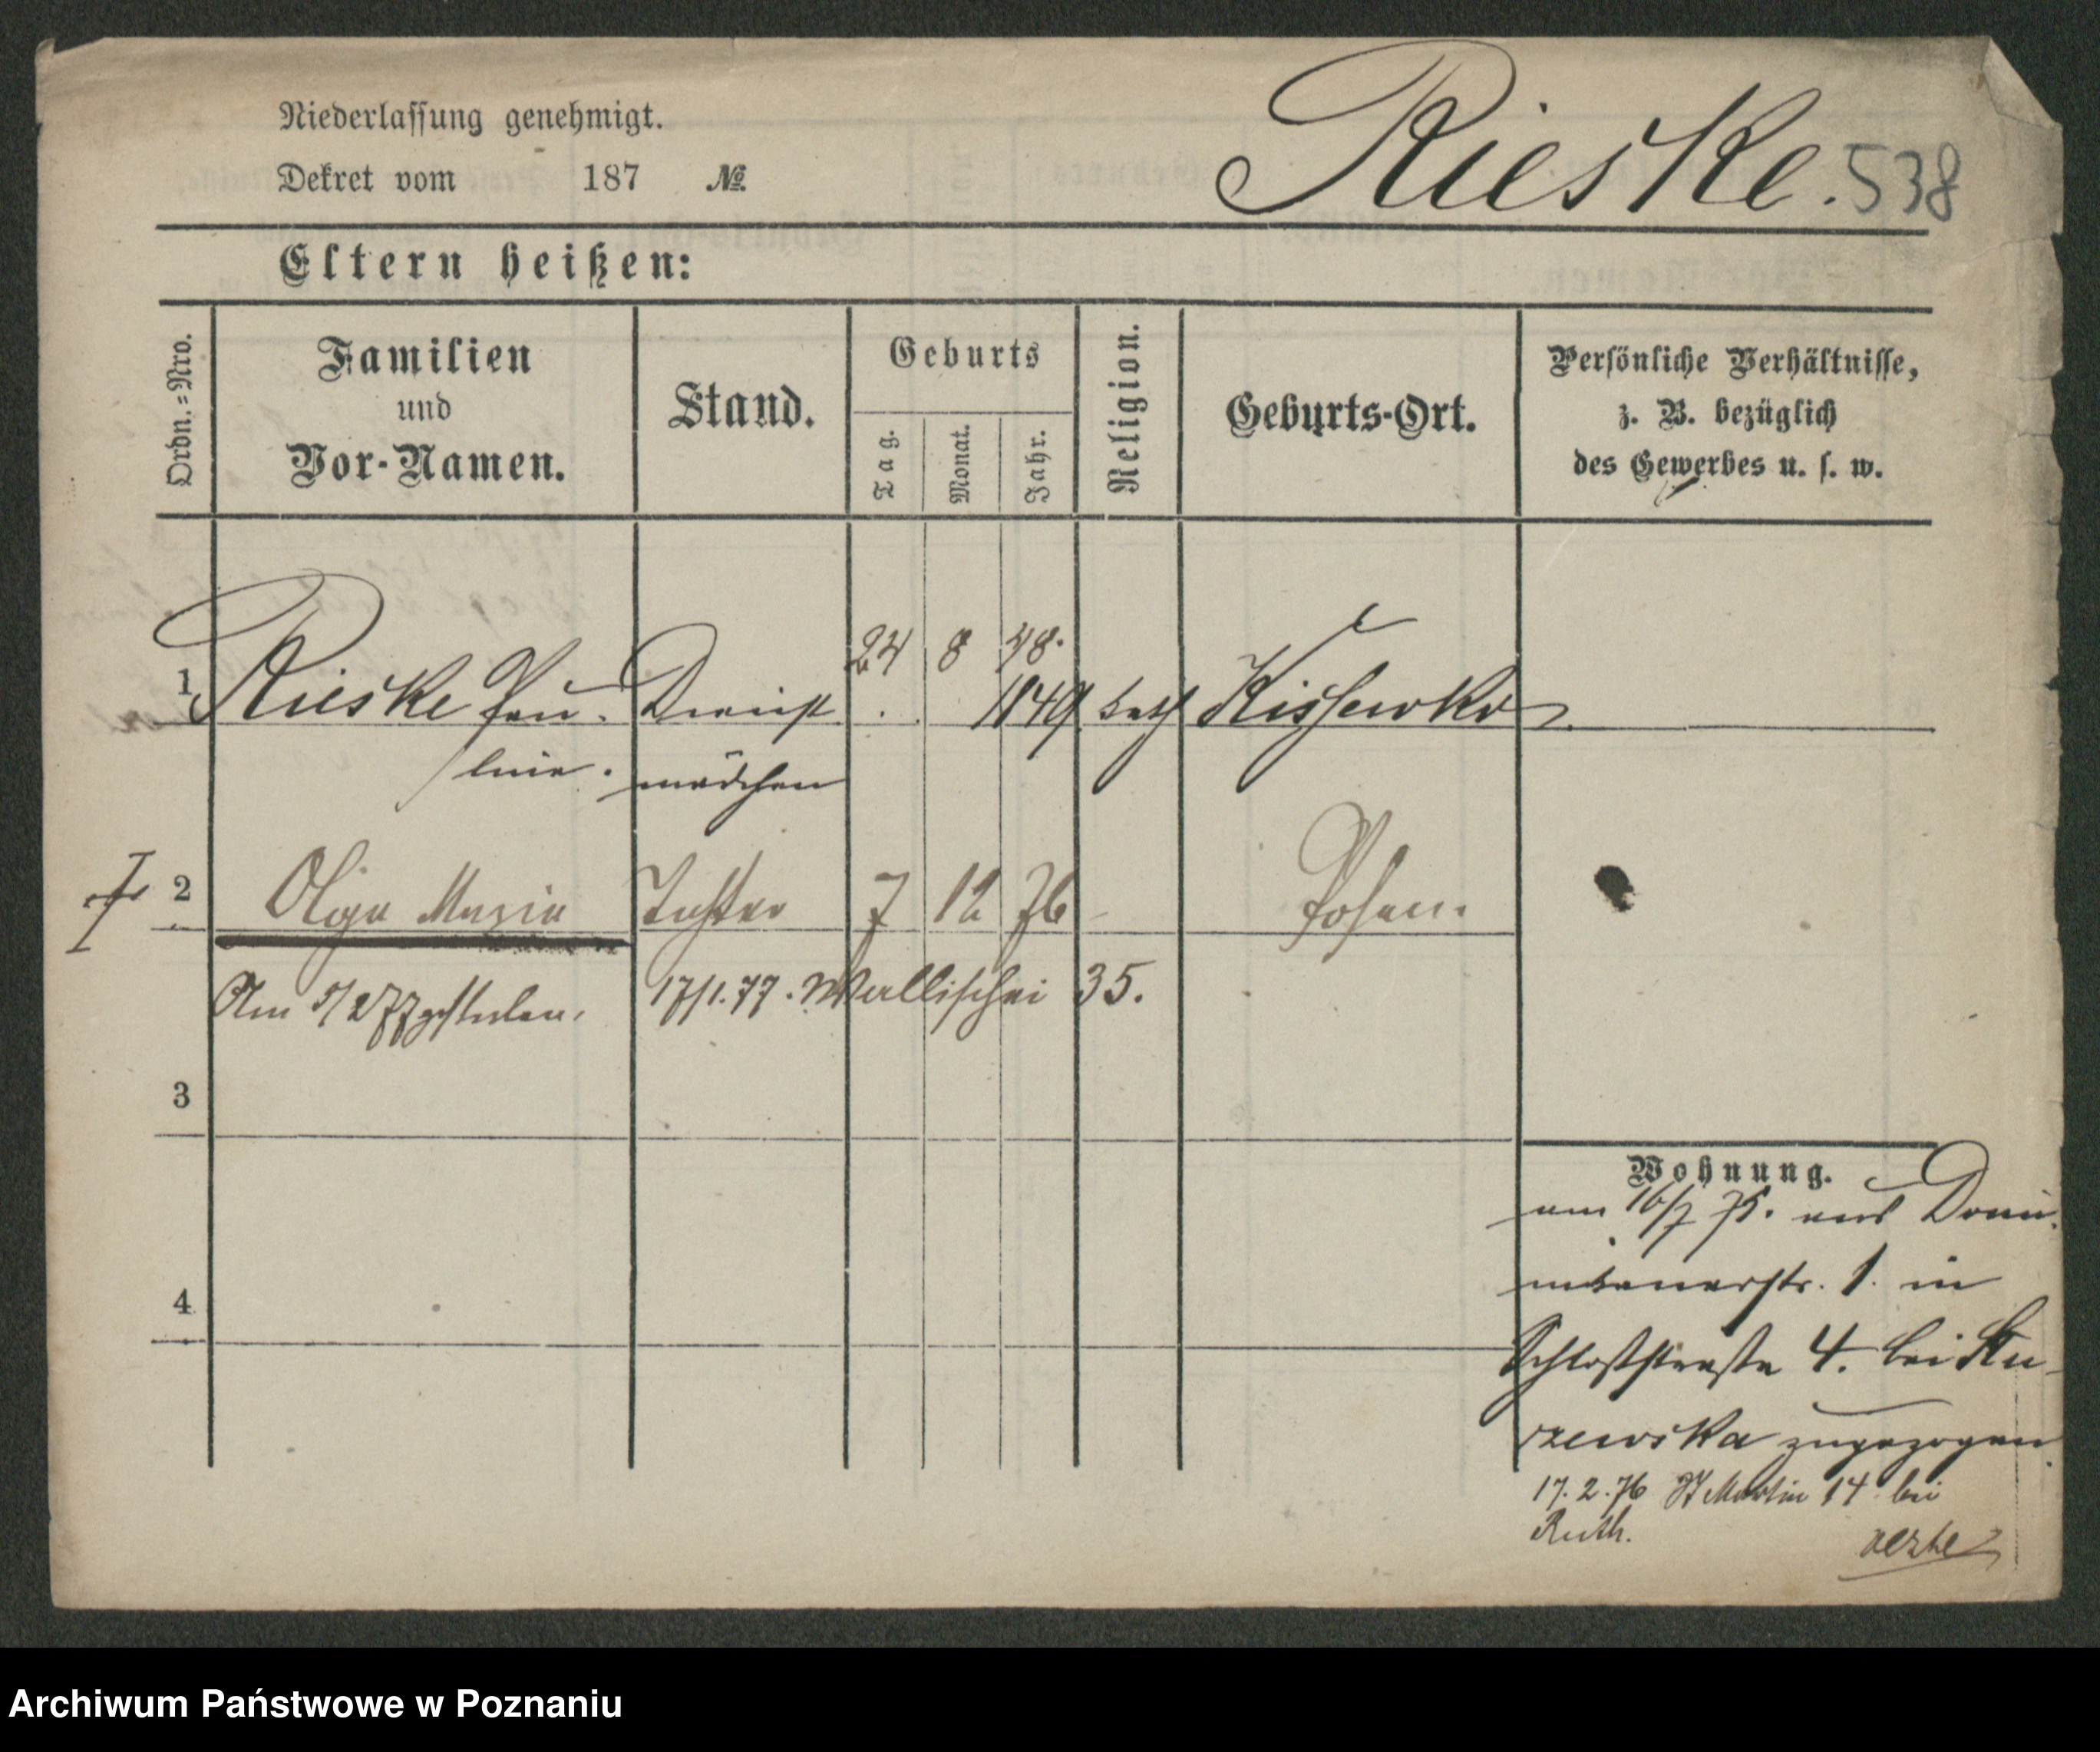 Niederlassung genehmigt.
Dekret vom 187 №
Rieske. 538
Eltern heißen:
Ordn.=Nro.
Familien
und
Vor-Namen.
Stand.
Geburts
Tag.
Monat.
Jahr.
Religion.
Geburts-Ort.
Persönliche Verhältnisse,
z. B. bezüglich
des Gewerbes u. s. w.
24 8 48.
1 Rieske Pau- Dienst 1849 kath Kissewko
line. mädchen
2 Olga Maria Tochter 7 12 76 Posen.
Am 5/2 77 gestorben. 17/1. 77. Wallischei 35.
3
4
Wohnung.
am 16/7 75. aus Domi-
nikanerstr. 1. in
Schloßstraße 4. bei Ku-
rzewska zugezogen
17. 2. 76 St Martin 14 bei
Ruth.
Archiwum Państwowe w Poznaniu